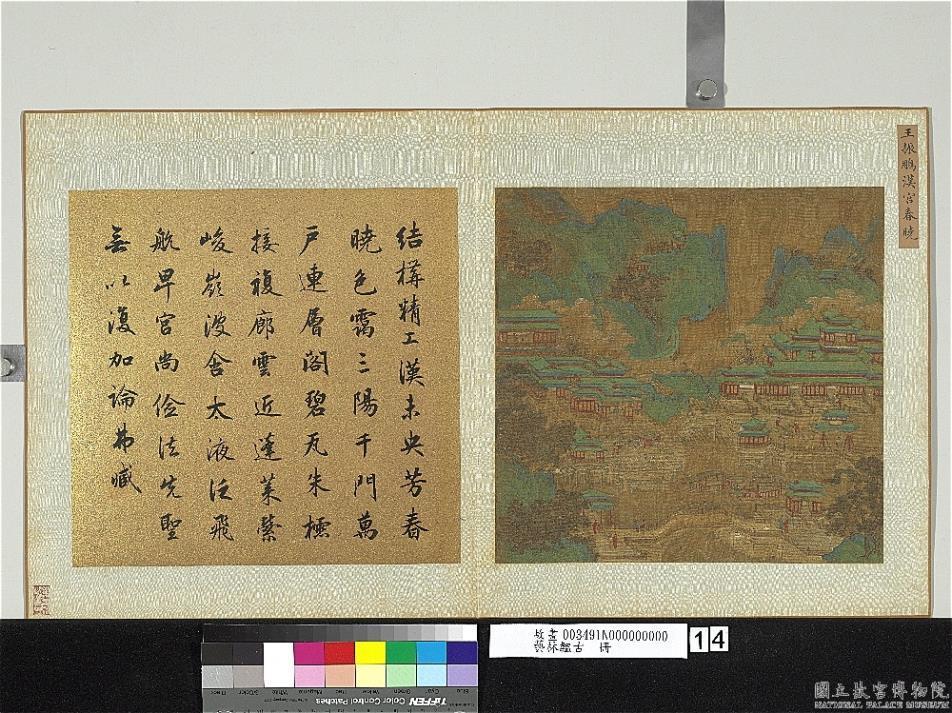 王振鵬漢宮春曉
結構精工漢未央芳春
曉色靄三陽千門萬
戶連層閣碧瓦朱櫺
接複廊雲近蓬萊縈
峻嶺波含太液泛飛
航卑宮尚儉法先聖
無以復加論弗臧
故畫 003491N000000000
藝林鑑古 冊
14
Black
3/Color
White
Magenta
Red
Yellow
Green
Cyan
Blue
TIFFEN Color Control Patches
國立故宮博物院
NATIONAL PALACE MUSEUM